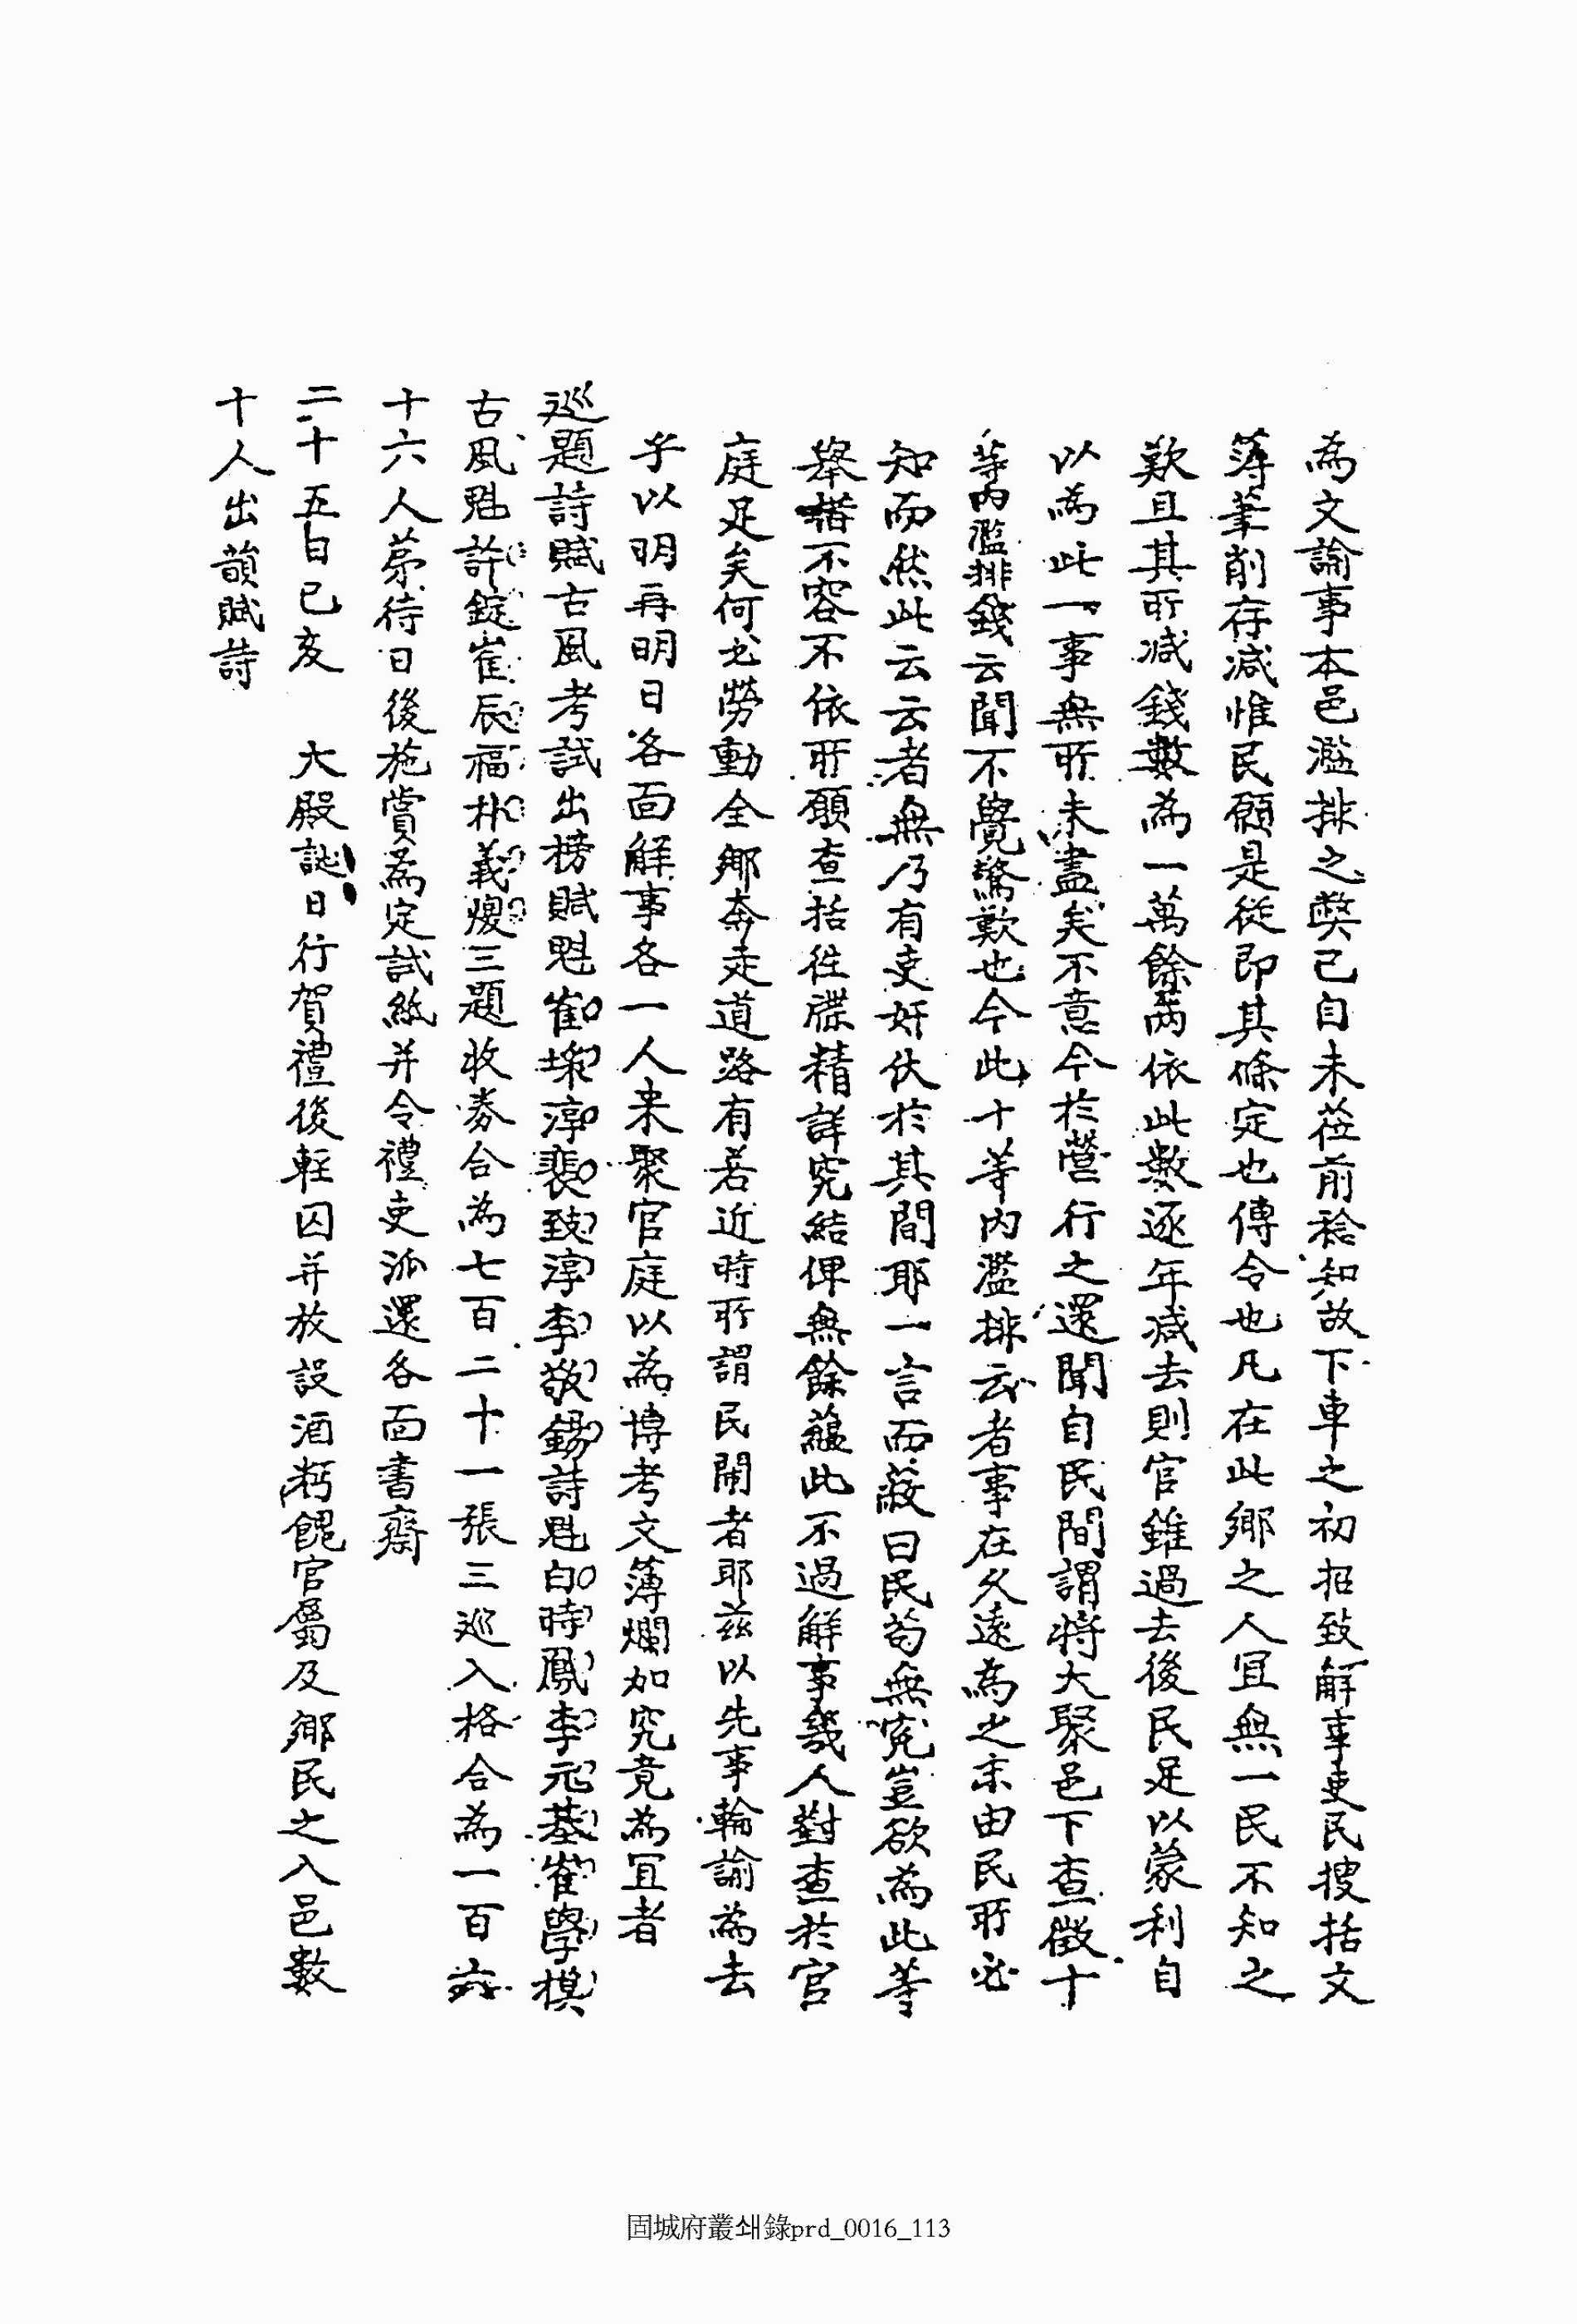 為文諭事本邑濫排之弊已自未莅前稔知故下車之初招致解事吏民搜括文
簿筆削存減惟民願是從即其條定也傳令也凡在此鄉之人宜無一民不知之
歎且其所減錢數為一萬餘兩依此數逐年減去則官雖過去後民足以蒙利自
以為此一事無所未盡矣不意今於營行之還聞自民間謂將大聚邑下查徵十
等內濫排錢云聞不覺驚歎也今此十等內濫排云者事在久遠為之末由民所必
知而然此云云者無乃有吏奸伏於其間耶一言而蔽曰民苟無寃豈欲為此等
舉措不容不依所願查括往牒精詳究結俾無餘蘊此不過解事幾人對查於官
庭足矣何必勞動全鄉奔走道路有若近時所謂民鬧者耶玆以先事輪諭為去
乎以明再明日各面解事各一人来聚官庭以為博考文簿爛加究竟為宜者
巡題詩賦古風考試出榜賦魁崔淳裴致淳李敬錫詩魁白時鳳李元基崔學模
古風魁許錠崔辰福朴義煥三題收券合為七百二十一張三巡入格合為一百六
十六人苐待日後施賞為定試紙并令禮吏派還各面書齋
二十五日己亥 大殿誕日行賀禮後輕囚并放設酒麪餽官屬及鄉民之入邑數
十人出韻賦詩
固城府叢쇄錄prd_0016_113